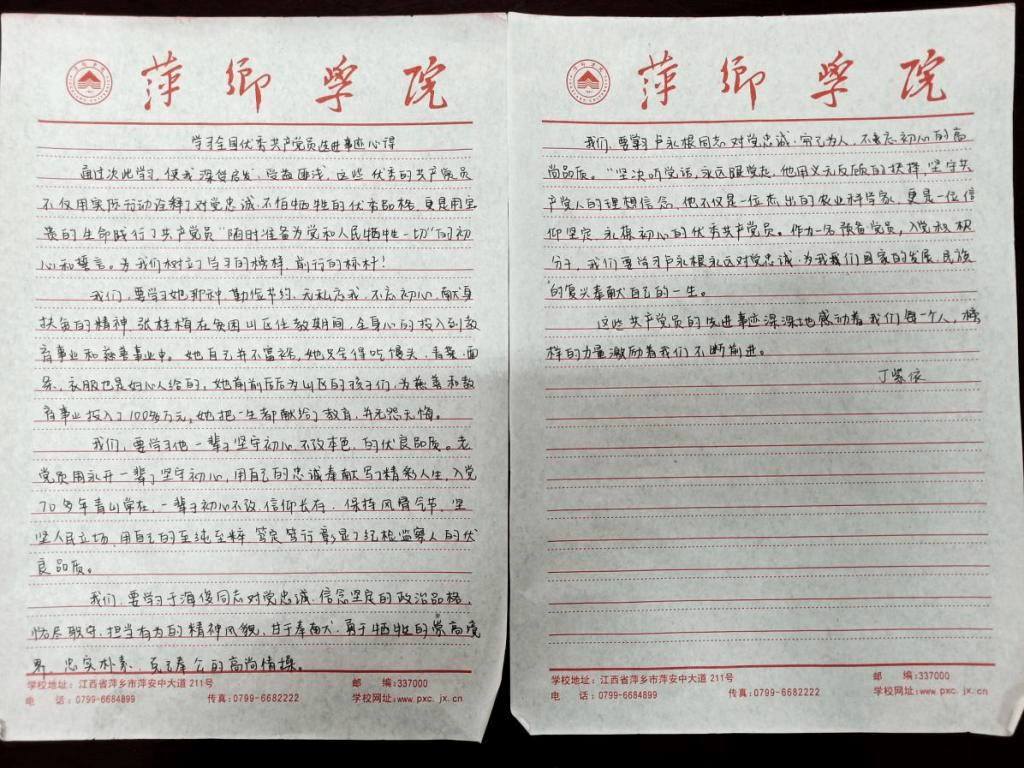 萍乡学院
学习全国优秀共产党员先进事迹心得
通过次此学习,使我深受启发、受益匪浅,这些优秀的共产党员
不仅用实际行动诠释了对党忠诚、不怕牺牲的优秀品格,更是用宝
贵的生命践行了共产党员“随时准备为党和人民牺牲一切”的初
心和誓言。为我们树立了学习的榜样,前行的标杆!
我们,要学习她那种,勤俭节约、无私忘我、不忘初心、献身
扶贫的精神,张桂梅在贫困山区任教期间,全身心的投入到教
育事业和慈善事业中。她自己并不富裕,她只舍得吃馒头、青菜、面
条、衣服也是好心人给的,她前前后后为山区的孩子们,为慈善和教
育事业投入了100多万元,她把一生都献给了教育,并无怨无悔。
我们,要学习他一辈子坚守初心、不改本色,的优良品质。老
党员周永开一辈子坚守初心,用自己的忠诚奉献写了精彩人生,入党
70多年青山常在,一辈子初心不改、信仰长存、保持风骨气节、坚
坚人民立场,用自己的至纯至粹、笃定笃行彰显了纪检监察人的优
良品质。
我们,要学习于海俊同志对党忠诚、信念坚定的政治品格,
恪尽职守、担当有为的精神风貌,甘于奉献、勇于牺牲的崇高境
界,忠实朴素、克己奉公的高尚情操。
学校地址:江西省萍乡市萍安中大道211号 邮 编:337000
电 话:0799-6684899 传真:0799-6682222 学校网址:www.pxc.jx.cn
萍乡学院
我们,要学习卢永根同志对党忠诚、穷己为人、不忘初心的高
尚品质。“坚决听党话,永远跟党走,他用义无反顾的抉择,坚守共
产党人的理想信念,他不仅是一位杰出的农业科学家,更是一位信
仰坚定、永葆初心的优秀共产党员。作为一名预备党员,入党积极
分子,我们要学习卢永根永远对党忠诚、为我我们国家的发展、民族
的复兴奉献自己的一生。
这些共产党员的先进事迹深深地感动着我们每一个人,榜
样的力量激励着我们不断前进。
丁紫依
学校地址:江西省萍乡市萍安中大道211号 邮 编:337000
电 话:0799-6684899 传真:0799-6682222 学校网址:www.pxc.jx.cn